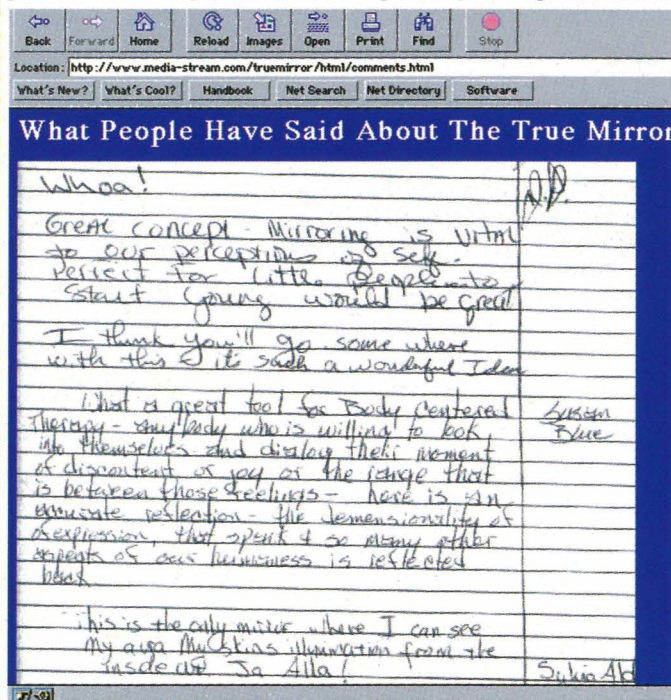 Back Forward Home Reload Images Open Print Find Stop
Location: http://www.media-stream.com/truemirror/html/comments.html
What's New? What's Cool? Handbook Net Search Net Directory Software
What People Have Said About The True Mirror
Whoa!
Great concept - Mirroring is vital
to our perceptions of self.
Perfect for little people to
start young would be great
I think you'll go some where
with this & it's such a wonderful Idea
What a great tool for Body Centered Susan
Therapy - any body who is willing to look Blue
into themselves and dialog their moment
of discontent or joy or the range that
is between those feelings - here is an
accurate reflection - the demensionality of
expression, that spark & so many other
aspects of our humaness is reflected
back
This is the only mirror where I can see
My aura My Skins illumination from the
inside out Ja Alla! Sylvia